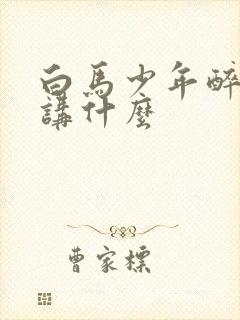 白馬少年醉
講什麼
曹家標